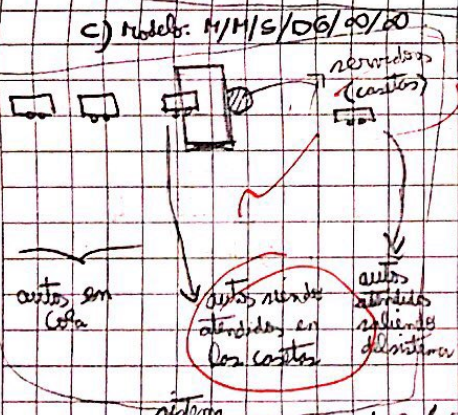 c) Modelo: M/M/S/DG/∞/∞
servidores
(casetas)
autos en
cola
autos siendo
atendidos en
las casetas
autos
atendidos
saliendo
del sistema
sistema